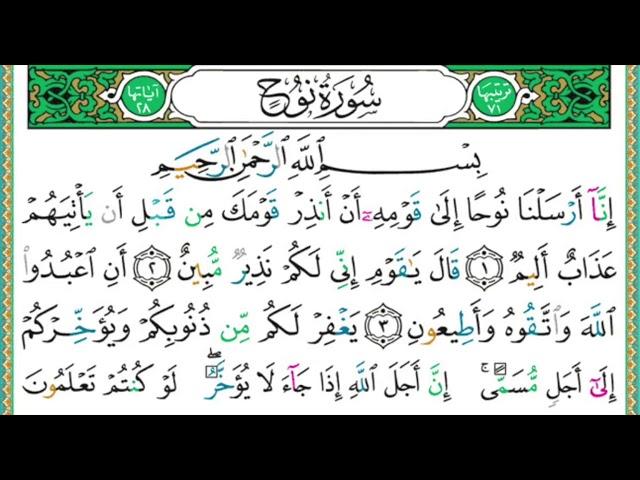 ترتيبها ٧١
سُورَةُ نُوحٍ
آيَاتها ٢٨
بِسْمِ ٱللَّهِ ٱلرَّحْمَٰنِ ٱلرَّحِيمِ
إِنَّآ أَرْسَلْنَا نُوحًا إِلَىٰ قَوْمِهِۦٓ أَنْ أَنذِرْ قَوْمَكَ مِن قَبْلِ أَن يَأْتِيَهُمْ
عَذَابٌ أَلِيمٌ ١ قَالَ يَٰقَوْمِ إِنِّي لَكُمْ نَذِيرٌ مُّبِينٌ ٢ أَنِ ٱعْبُدُوا۟
ٱللَّهَ وَٱتَّقُوهُ وَأَطِيعُونِ ٣ يَغْفِرْ لَكُم مِّن ذُنُوبِكُمْ وَيُؤَخِّرْكُمْ
إِلَىٰٓ أَجَلٍ مُّسَمًّى ۚ إِنَّ أَجَلَ ٱللَّهِ إِذَا جَآءَ لَا يُؤَخَّرُ ۖ لَوْ كُنتُمْ تَعْلَمُونَ